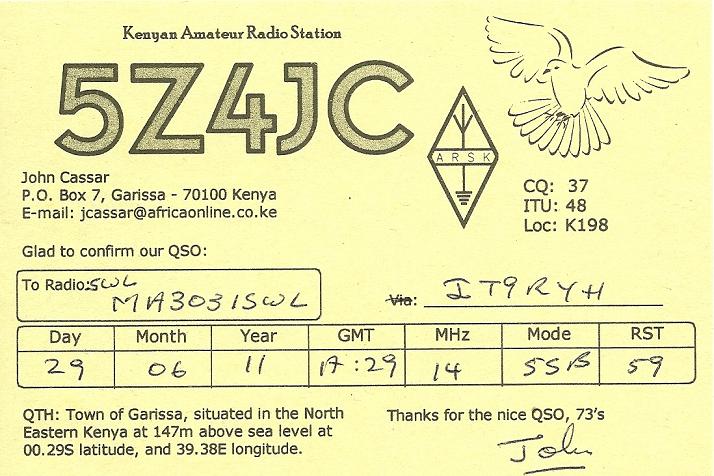 Kenyan Amateur Radio Station
5Z4JC
ARSK
John Cassar
P.O. Box 7, Garissa - 70100 Kenya
E-mail: jcassar@africaonline.co.ke
CQ: 37
ITU: 48
Loc: K198
Glad to confirm our QSO:
To Radio: SWL
MA3031SWL
Via: IT9RYH
Day Month Year GMT MHz Mode RST
29 06 11 17:29 14 SSB 59
QTH: Town of Garissa, situated in the North
Eastern Kenya at 147m above sea level at
00.29S latitude, and 39.38E longitude.
Thanks for the nice QSO, 73's
John